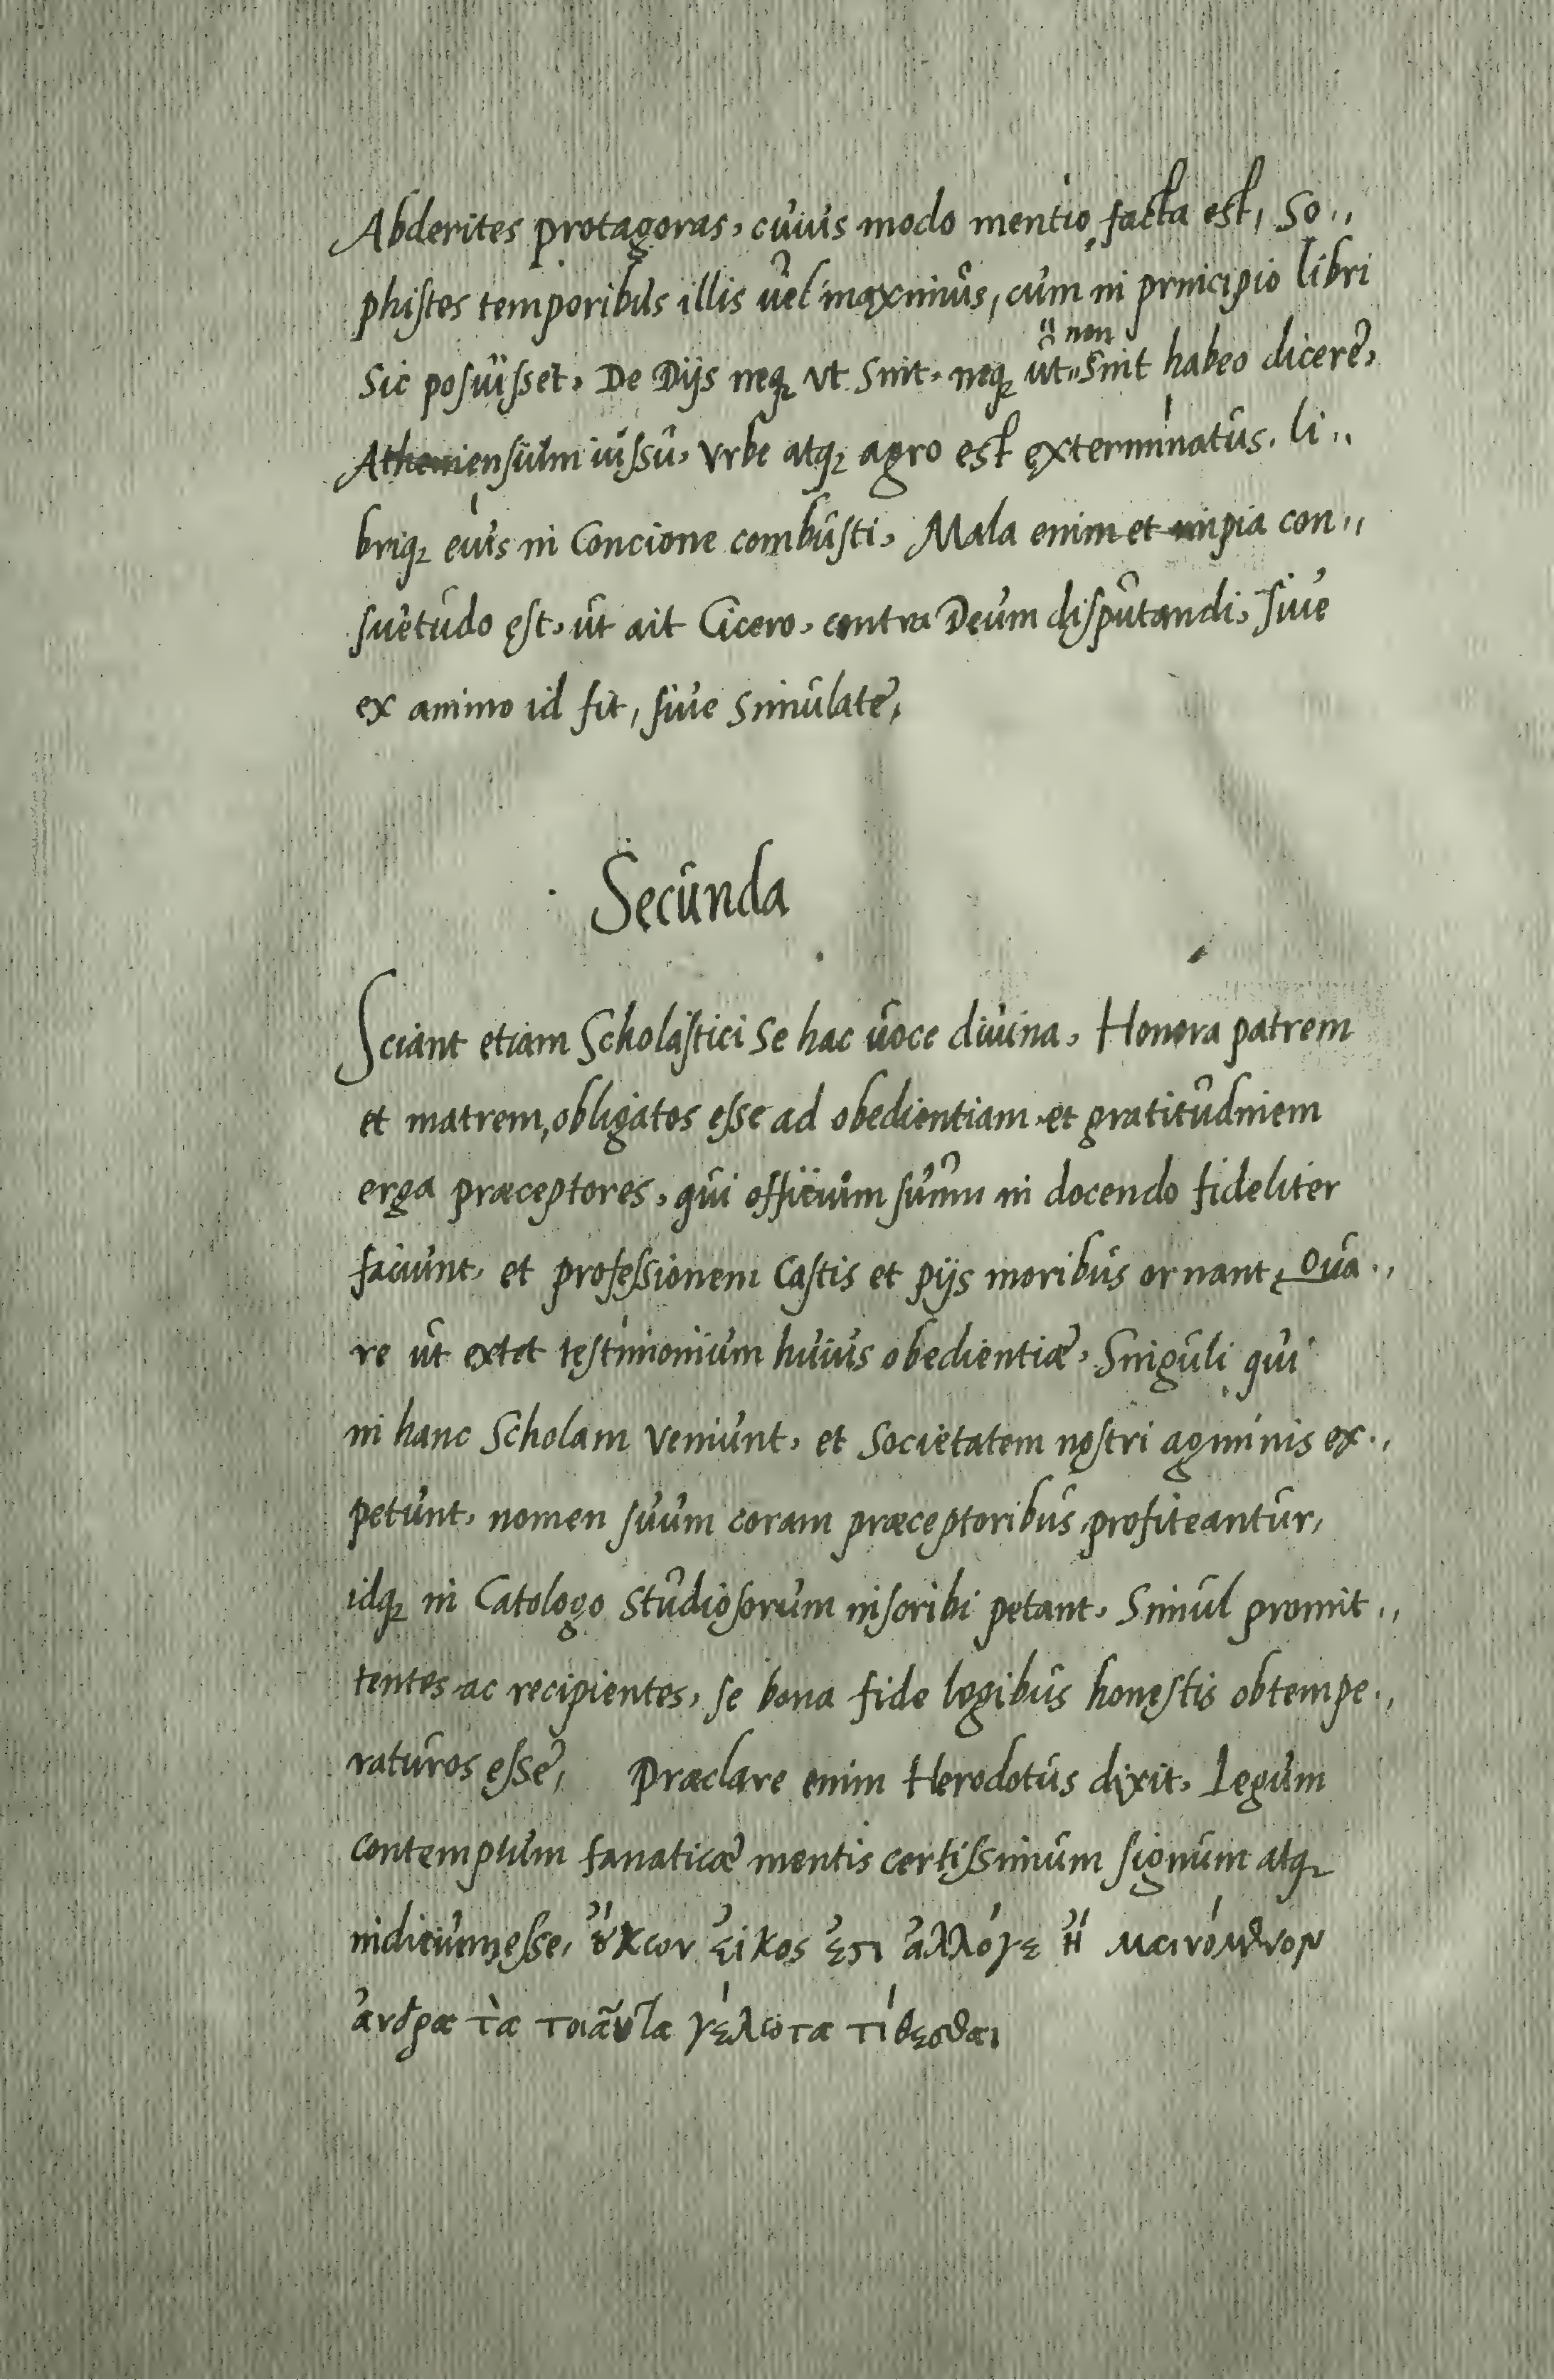 Abderites protagoras, cuius modo mentio facta est, So„
phistes temporibus illis uel maximus, cum in principio libri
Sic posuisset, De Dijs neq; vt Sint, neq; ut non Sint habeo dicere,
Atheniensium iussu, Vrbe atq; agro est exterminatus, li„
briq; eius in Concione combusti, Mala enim et impia con„
suetudo est, ut ait Cicero, contra Deum disputandi, siue
ex animo id fit, siue Simulate,
Secunda
Sciant etiam Scholastici Se hac uoce diuina, Honora patrem
et matrem, obligatos esse ad obedientiam et gratitudinem
erga præceptores, qui officium suum in docendo fideliter
faciunt, et professionem Castis et pijs moribus ornant, Qua„
re ut extet testimonium huius obedientiæ, Singuli qui
in hanc Scholam Veniunt, et Societatem nostri agminis ex„
petunt, nomen suum coram præceptoribus profiteantur,
idq; in Catologo Studiosorum inscribi petant, Simul promit„
tentes ac recipientes, se bona fide legibus honestis obtempe„
raturos esse, Præclare enim Herodotus dixit, Legum
contemptum fanaticæ mentis certissimum signum atq;
indicium esse, ὔκων εἰκος ἐστι ἀλλόγε ἢ μαινόμενον
ἀνδρα τὰ τοιαῦτα γέλωτα τίθεσθαι